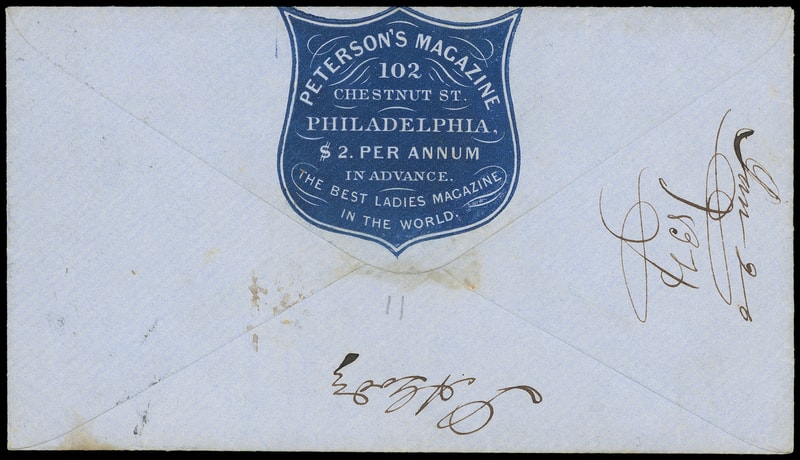 PETERSON'S MAGAZINE
102
CHESTNUT ST.
PHILADELPHIA,
$2. PER ANNUM
IN ADVANCE.
THE BEST LADIES MAGAZINE
IN THE WORLD.
11